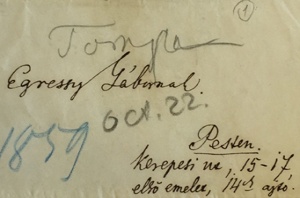 1
Tompa
Egressy Gábornak.
Oct. 22.
1859
Pesten.
kerepesi ut, 15-17
első emelet, 14ik ajtó.